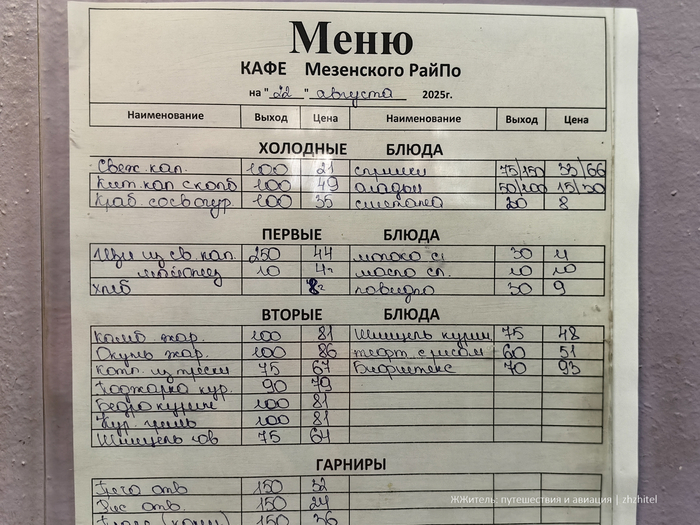 Меню
КАФЕ Мезенского РайПо
на "22" августа 2025г.
Наименование Выход Цена Наименование Выход Цена
ХОЛОДНЫЕ БЛЮДА
Свеж. кап. 100 21 75/150 33/66
100 49 оладьи 50/100 15/30
Краб. со св огур. 100 35 сметана 20 8
ПЕРВЫЕ БЛЮДА
Щи из св. кап. 250 44 молоко сг 30 11
майонез 10 4 масло сл. 10 10
хлеб повидло 30 9
ВТОРЫЕ БЛЮДА
Камб жар. 100 81 Шницель курин 75 48
Окунь жар. 100 86 тефт. с рисом 60 51
Котл. из трески 75 67 Бифштекс 70 93
Поджарка кур. 90 79
Бедро курин 100 81
Кур. 100 81
Шницель 75 64
ГАРНИРЫ
Греча отв 150 32
Рис отв. 150 24
150 36
ЖЖитель: путешествия и авиация | zhzhitel